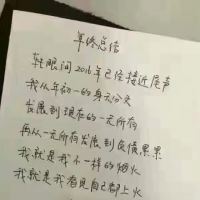 年终总结
转眼间2016年已经接近尾声
我从年初一的身无分文
发展到现在的一无所有
再从一无所有发展到负债累累
我就是我不一样的烟火
我就是我看见自己都上火